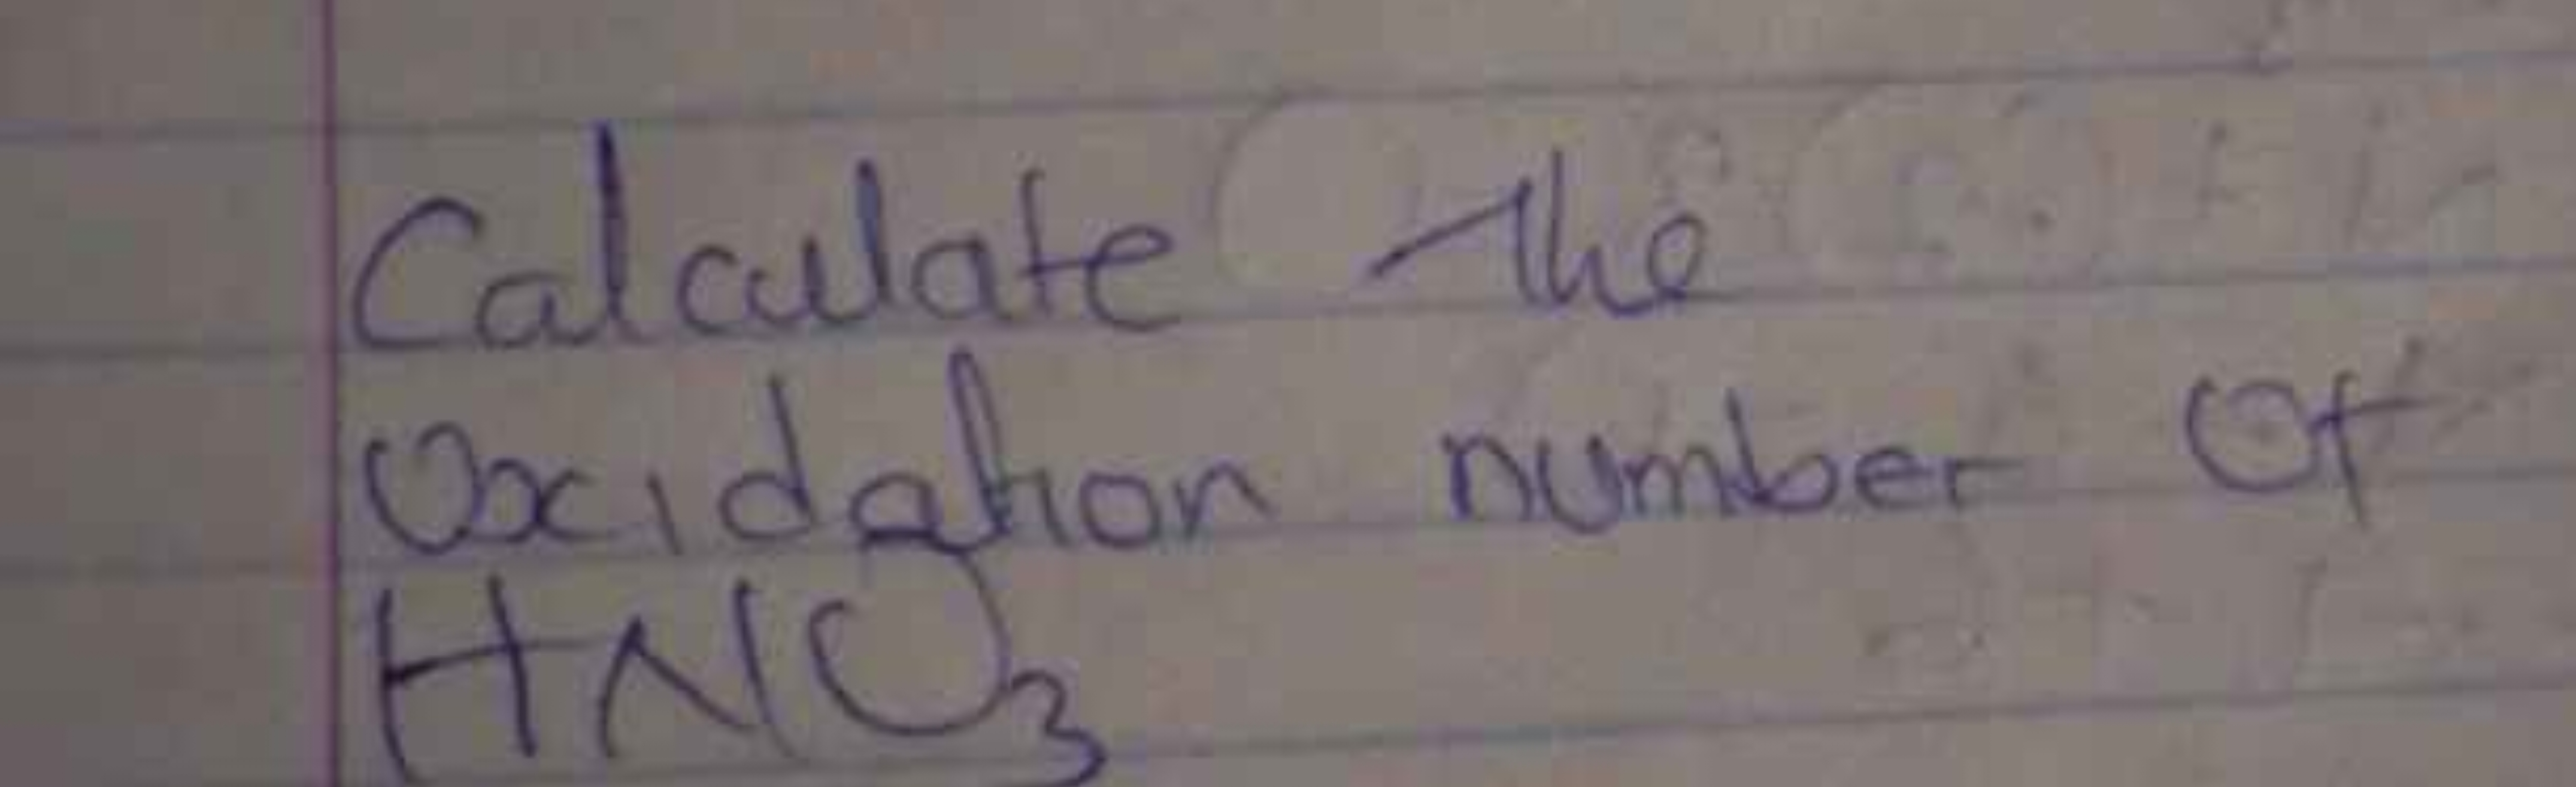 Calculate the
Oxidation number of
HNO₃